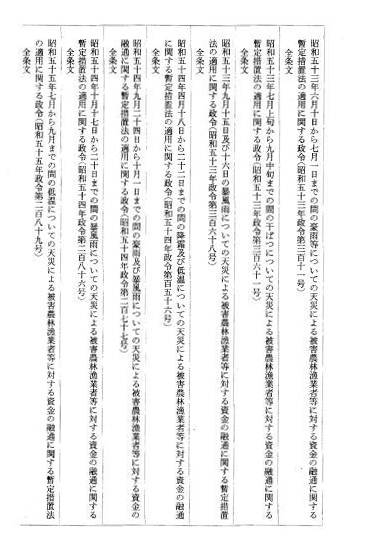 昭和五十三年六月十日から七月一日までの間の豪雨等についての天災による被害農林漁業者等に対する資金の融通に関する
暫定措置法の適用に関する政令（昭和五十三年政令第三百十一号）
全条文
昭和五十三年七月上旬から九月中旬までの間の干ばつについての天災による被害農林漁業者等に対する資金の融通に関する
暫定措置法の適用に関する政令（昭和五十三年政令第三百六十一号）
全条文
昭和五十三年九月十五日及び十六日の暴風雨についての天災による被害農林漁業者等に対する資金の融通に関する暫定措置
法の適用に関する政令（昭和五十三年政令第三百六十八号）
全条文
昭和五十四年四月十八日から二十二日までの間の降霜及び低温についての天災による被害農林漁業者等に対する資金の融通
に関する暫定措置法の適用に関する政令（昭和五十四年政令第百五十六号）
全条文
昭和五十四年九月二十四日から十月一日までの間の豪雨及び暴風雨についての天災による被害農林漁業者等に対する資金の
融通に関する暫定措置法の適用に関する政令（昭和五十四年政令第二百七十七号）
全条文
昭和五十四年十月十七日から二十日までの間の暴風雨についての天災による被害農林漁業者等に対する資金の融通に関する
暫定措置法の適用に関する政令（昭和五十四年政令第二百八十六号）
全条文
昭和五十五年七月から九月までの間の低温についての天災による被害農林漁業者等に対する資金の融通に関する暫定措置法
の適用に関する政令（昭和五十五年政令第二百八十九号）
全条文